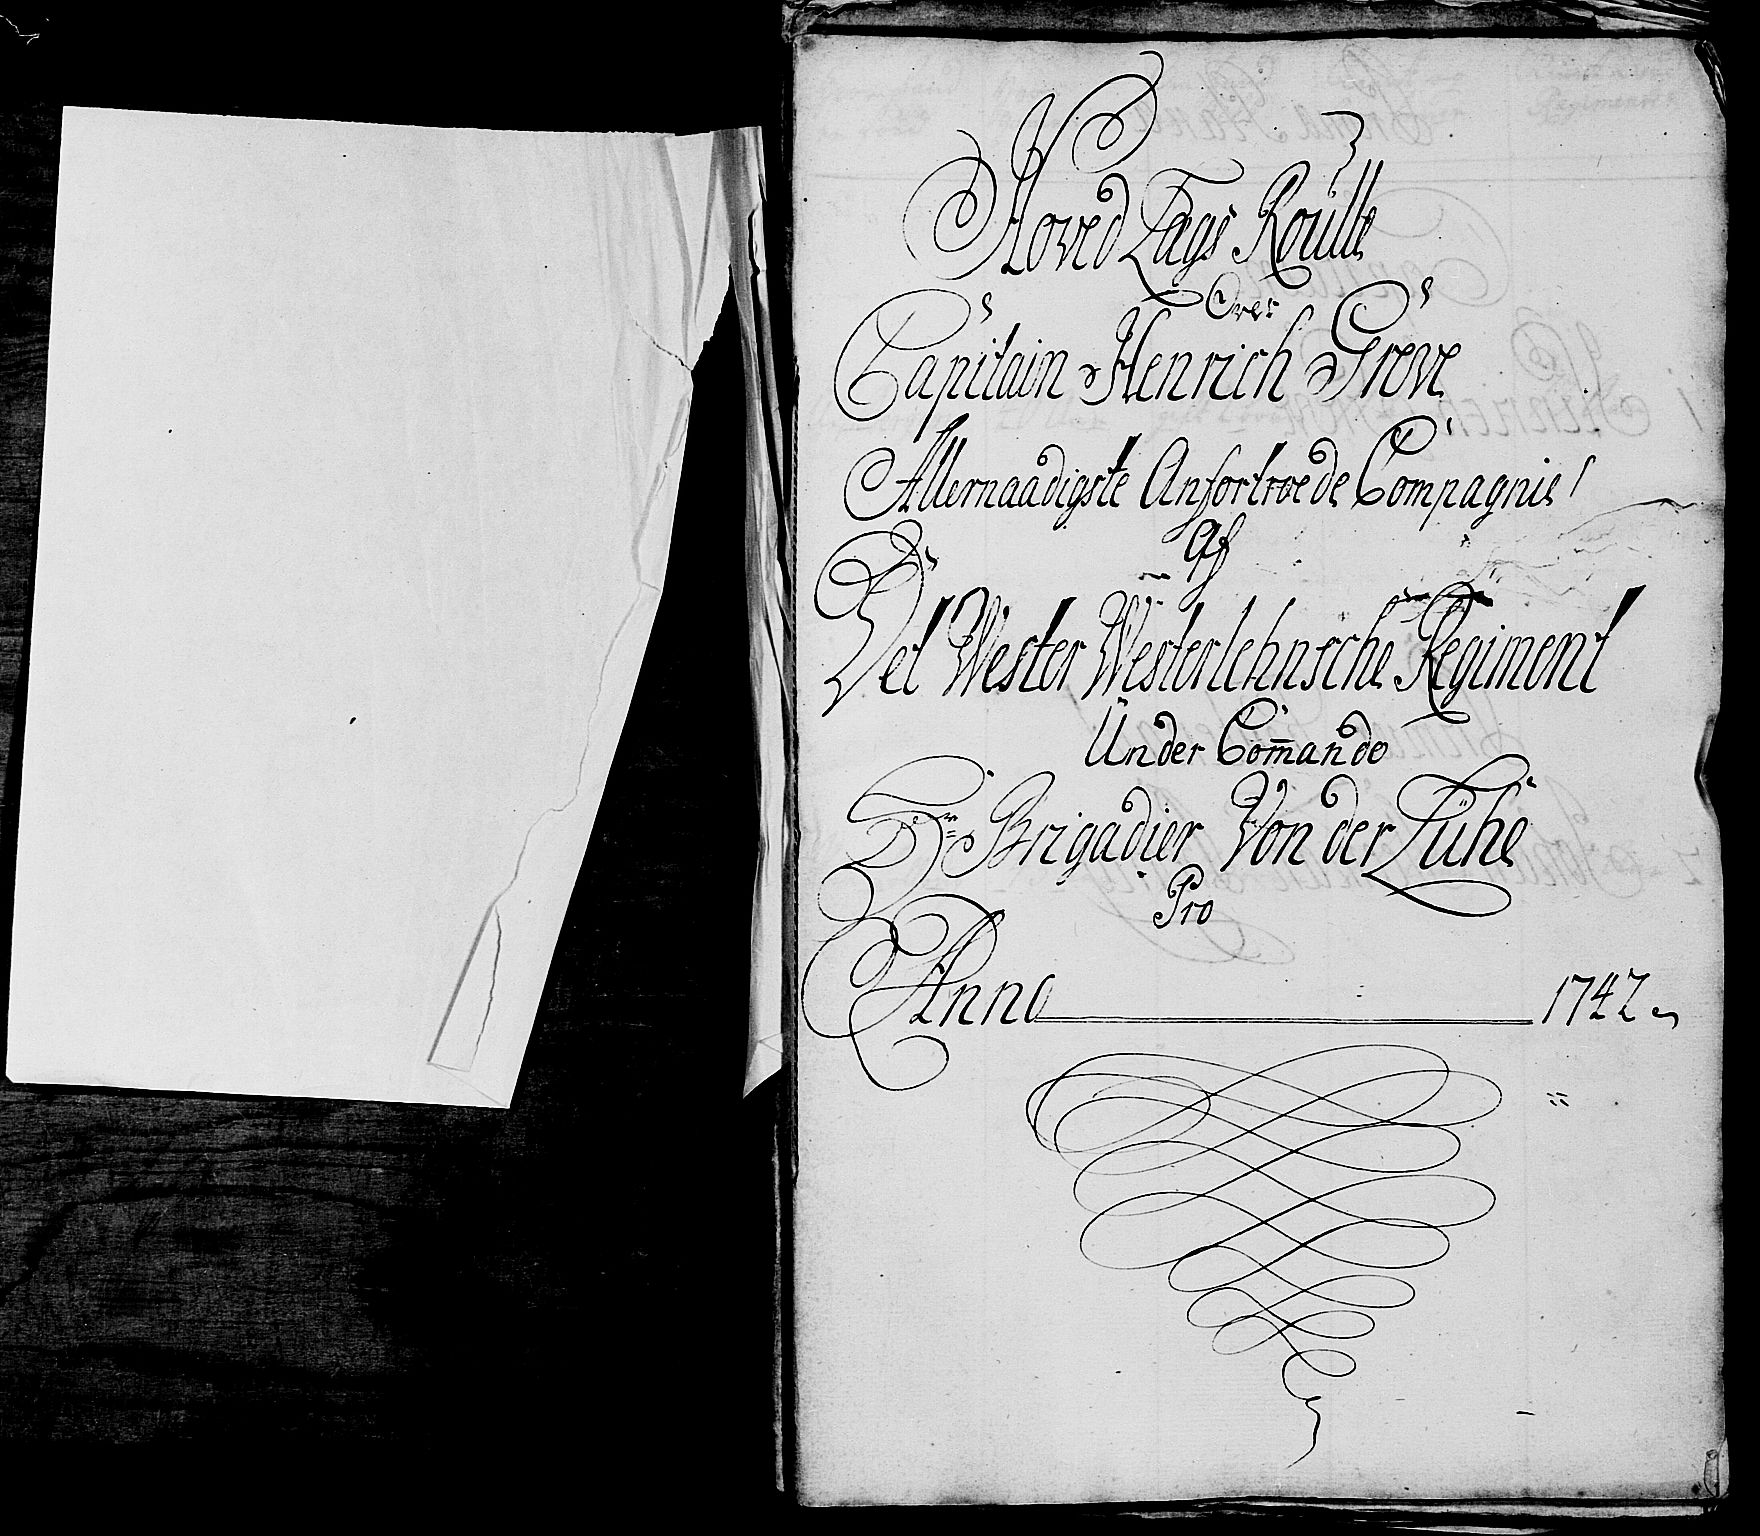 Hoved Lægs Roulle
Over
Capitain Henrich Greve
Allernaadigste Anfortroede Compagnie
Af
Det Wester Westerlehnsche Regiment
Under Com̄ando
Hr Brigadier Von der Lühe
Pro
Anno 1742